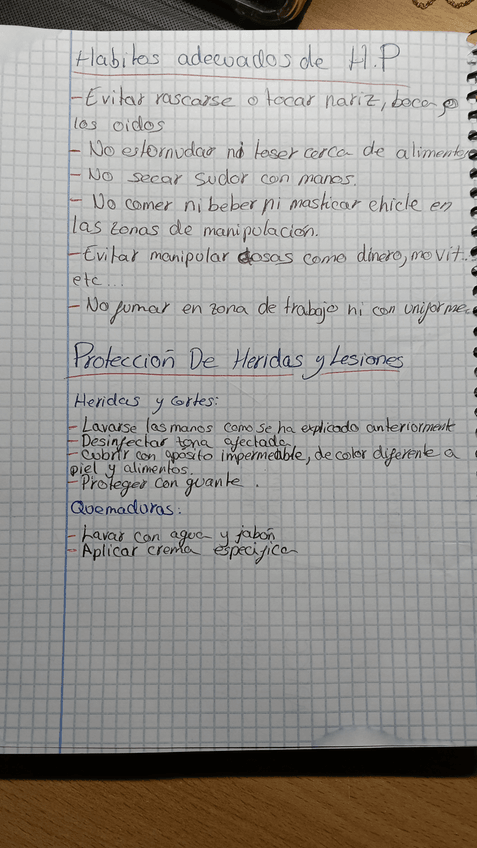 Habitos adecuados de H.P
- Evitar rascarse o tocar nariz, boca o
los oidos
- No estornudar ni toser cerca de alimentos
- No secar sudor con manos.
- No comer ni beber ni masticar chicle en
las zonas de manipulación.
- Evitar manipular cosas como dinero, movil..
etc...
- No fumar en zona de trabajo ni con uniforme.
Protección De Heridas y Lesiones
Heridas y Cortes:
- Lavarse las manos como se ha explicado anteriormente
- Desinfectar zona afectada
- Cubrir con apósito impermeable, de color diferente a
piel y alimentos.
- Proteger con guante.
Quemaduras:
- Lavar con agua y jabón
- Aplicar crema especifica